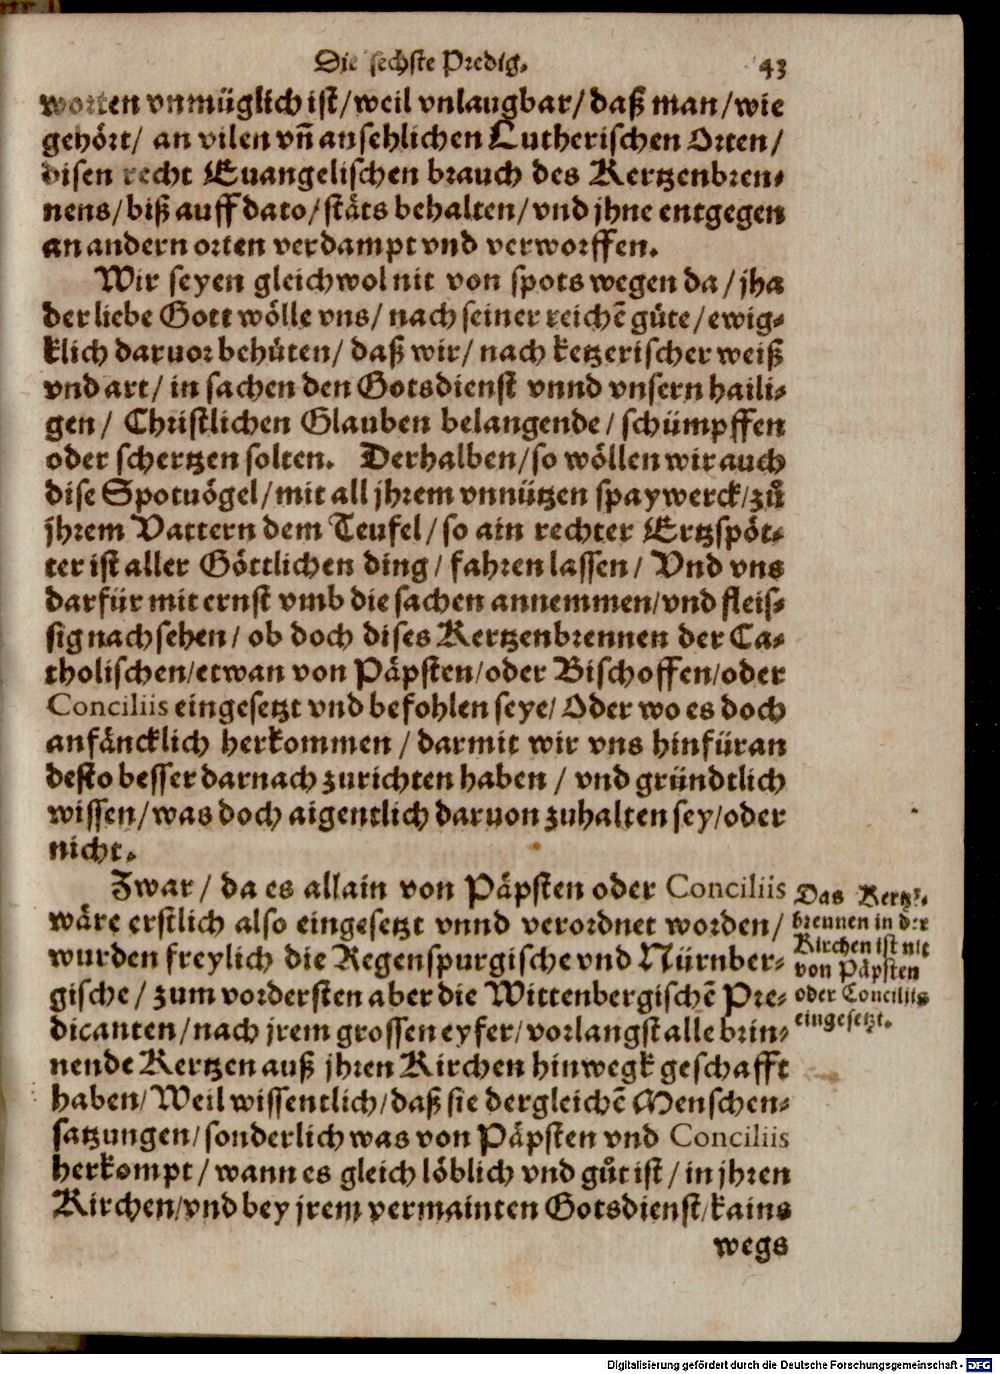 Die sechste Predig. 43
worten vnmüglich ist/ weil vnlaugbar/ daß man/ wie
gehört/ an vilen vñ ansehlichen Lutherischen Orten/
disen recht Euangelischen brauch des Kertzenbren-
nens/ biß auff dato/ stäts behalten/ vnd jhne entgegen
an andern orten verdampt vnd verworffen.
Wir seyen gleichwol nit von spots wegen da/ jha
der liebe Gott wölle vns/ nach seiner reichẽ güte/ ewig-
klich daruor behüten/ daß wir/ nach ketzerischer weiß
vnd art/ in sachen den Gotsdienst vnnd vnsern haili-
gen/ Christlichen Glauben belangende/ schümpffen
oder schertzen solten. Derhalben/ so wöllen wir auch
dise Spotuögel/ mit all jhrem vnnützen spaywerck/ zů
jhrem Vattern dem Teufel/ so ain rechter Ertzspöt-
ter ist aller Göttlichen ding/ fahren lassen/ Vnd vns
darfür mit ernst vmb die sachen annemmen/ vnd fleis-
sig nachsehen/ ob doch dises Kertzenbrennen der Ca-
tholischen/ etwan von Päpsten/ oder Bischoffen/ oder
Conciliis eingesetzt vnd befohlen seye/ Oder wo es doch
anfäncklich herkommen/ darmit wir vns hinfüran
desto besser darnach zurichten haben/ vnd gründtlich
wissen/ was doch aigentlich daruon zuhalten sey/ oder
nicht.
Zwar/ da es allain von Päpsten oder Conciliis
wäre erstlich also eingesetzt vnnd verordnet worden/
wurden freylich die Regenspurgische vnd Nürnber-
gische/ zum vordersten aber die Wittenbergischẽ Pre-
dicanten/ nach jrem grossen eyfer/ vorlangst alle brin-
nende Kertzen auß jhren Kirchen hinwegk geschafft
haben/ Weil wissentlich/ daß sie dergleichẽ Menschen-
satzungen/ sonderlich was von Päpsten vnd Conciliis
herkompt/ wann es gleich löblich vnd gůt ist/ in jhren
Kirchen/ vnd bey jrem vermainten Gotsdienst/ kains
wegs
Das Kertz-
brennen in der
Kirchen ist nit
von Päpsten
oder Conciliis
eingesetzt.
Digitalisierung gefördert durch die Deutsche Forschungsgemeinschaft - DFG